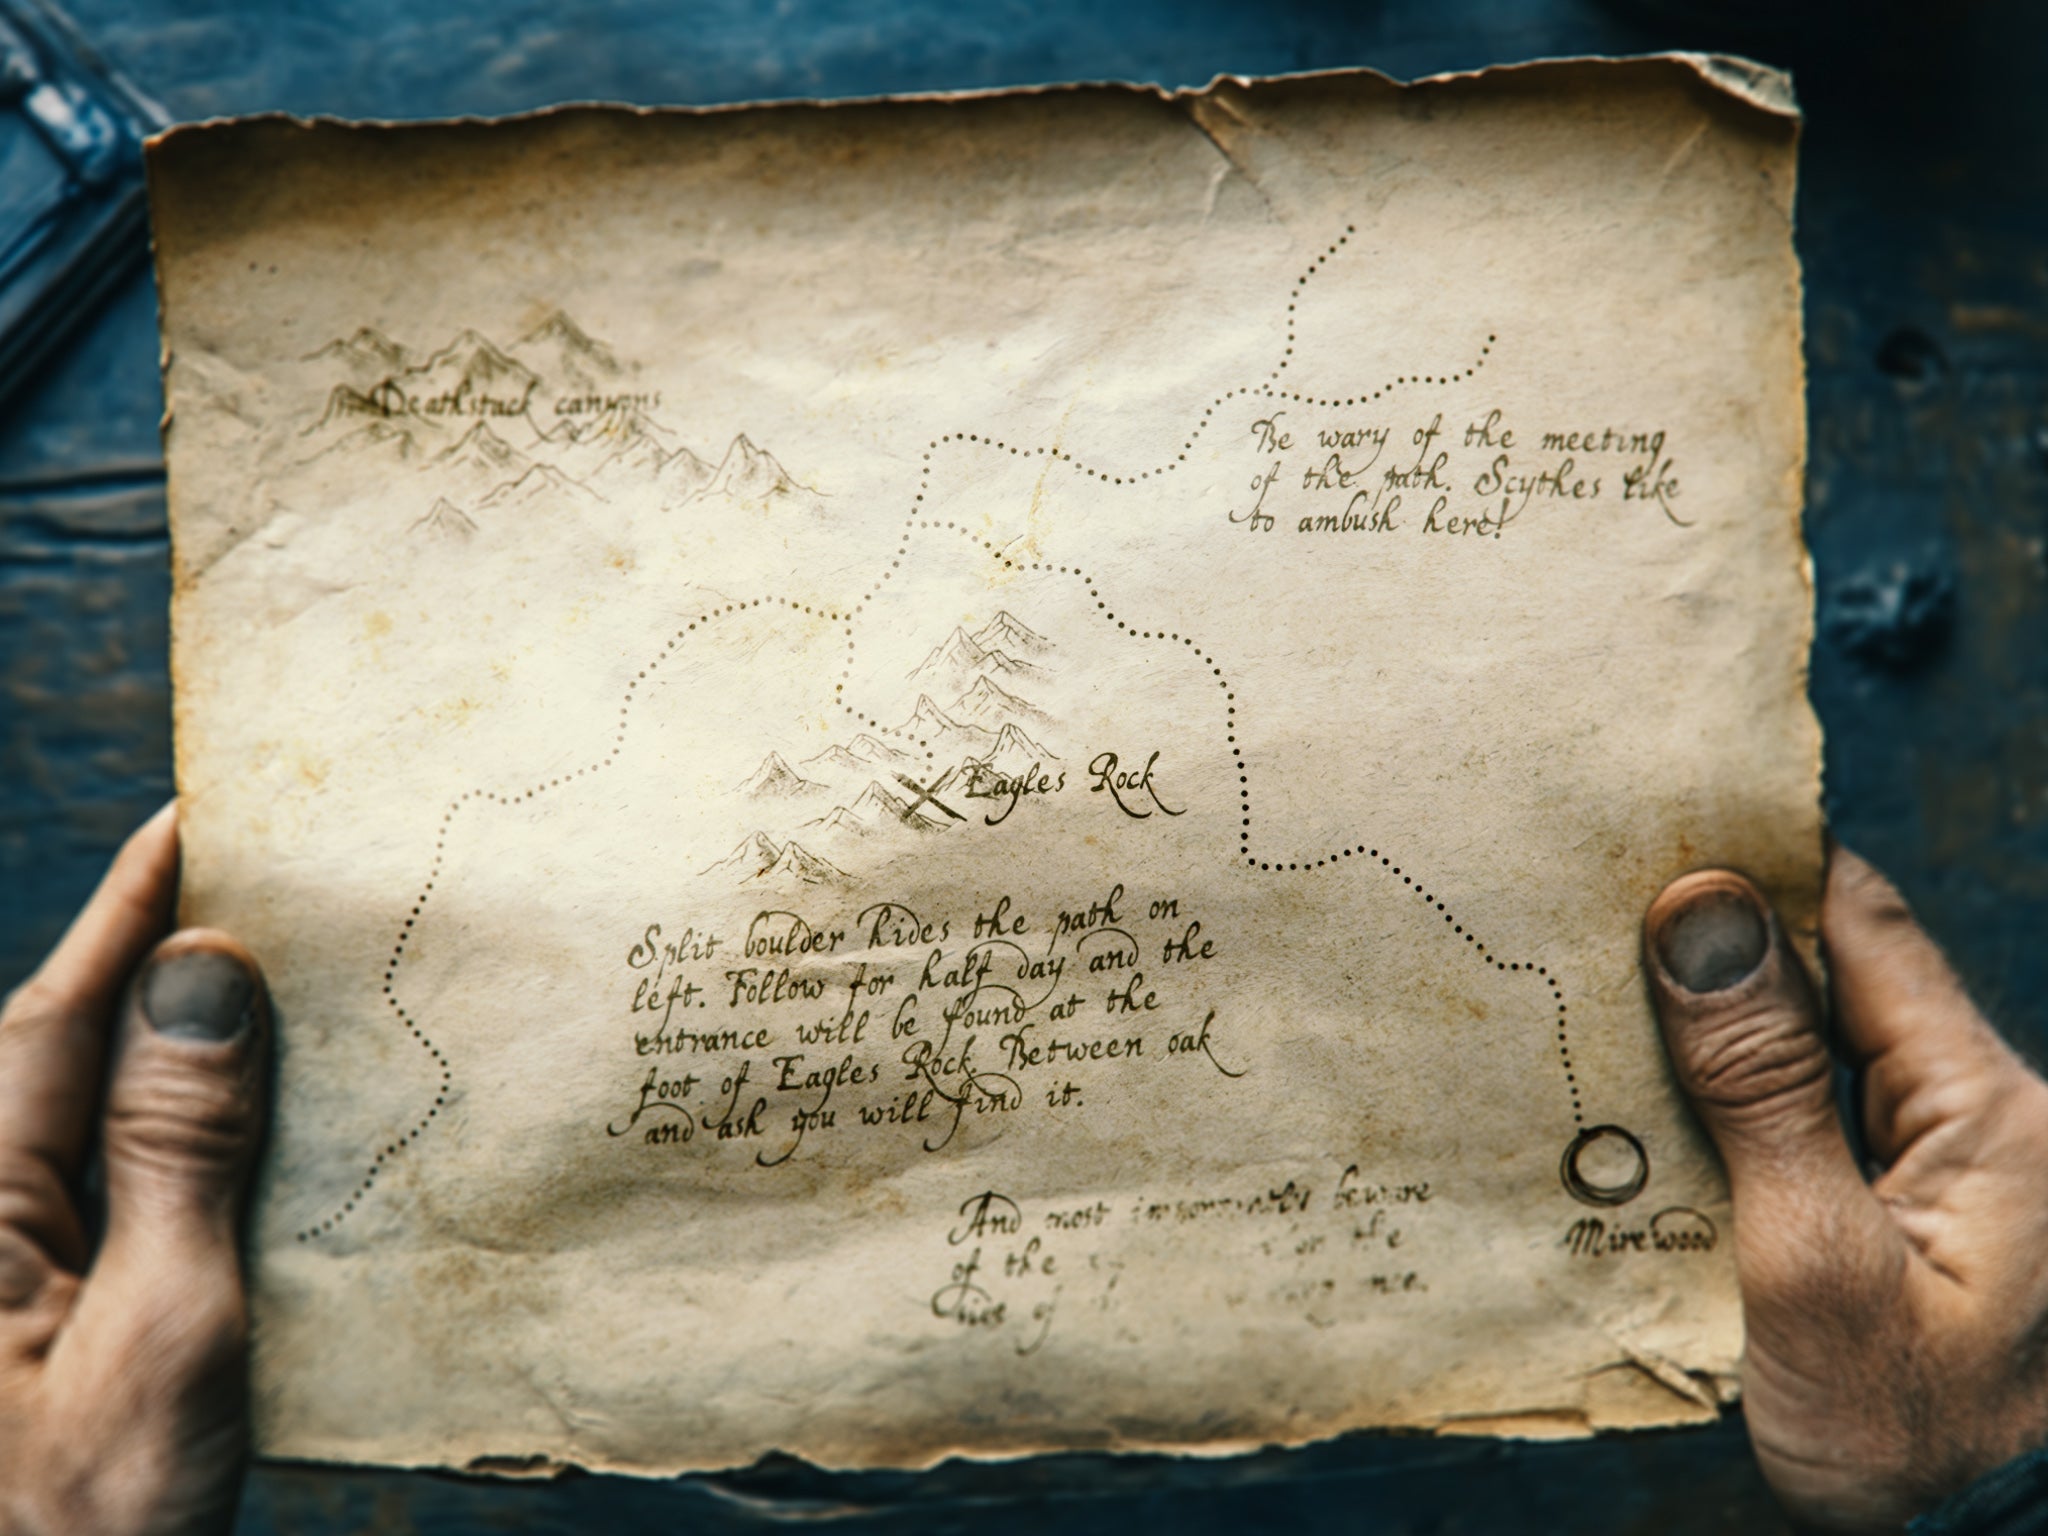 Deathstack canyons
Be wary of the meeting
of the path. Scythes like
to ambush here!
Eagles Rock
Split boulder hides the path on
left. Follow for half day and the
entrance will be found at the
foot of Eagles Rock. Between oak
and ash you will find it.
And most importantly beware
of the for the
of
Mirewood